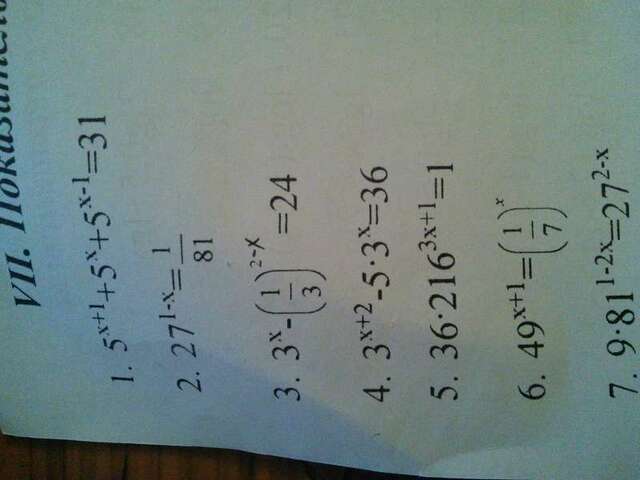 VII. Показател
1. 5^{x+1}+5^x+5^{x-1}=31
2. 27^{1-x}=\frac{1}{81}
3. 3^x-\left(\frac{1}{3}\right)^{2-x}=24
4. 3^{x+2}-5·3^x=36
5. 36·216^{3x+1}=1
6. 49^{x+1}=\left(\frac{1}{7}\right)^x
7. 9·81^{1-2x}=27^{2-x}